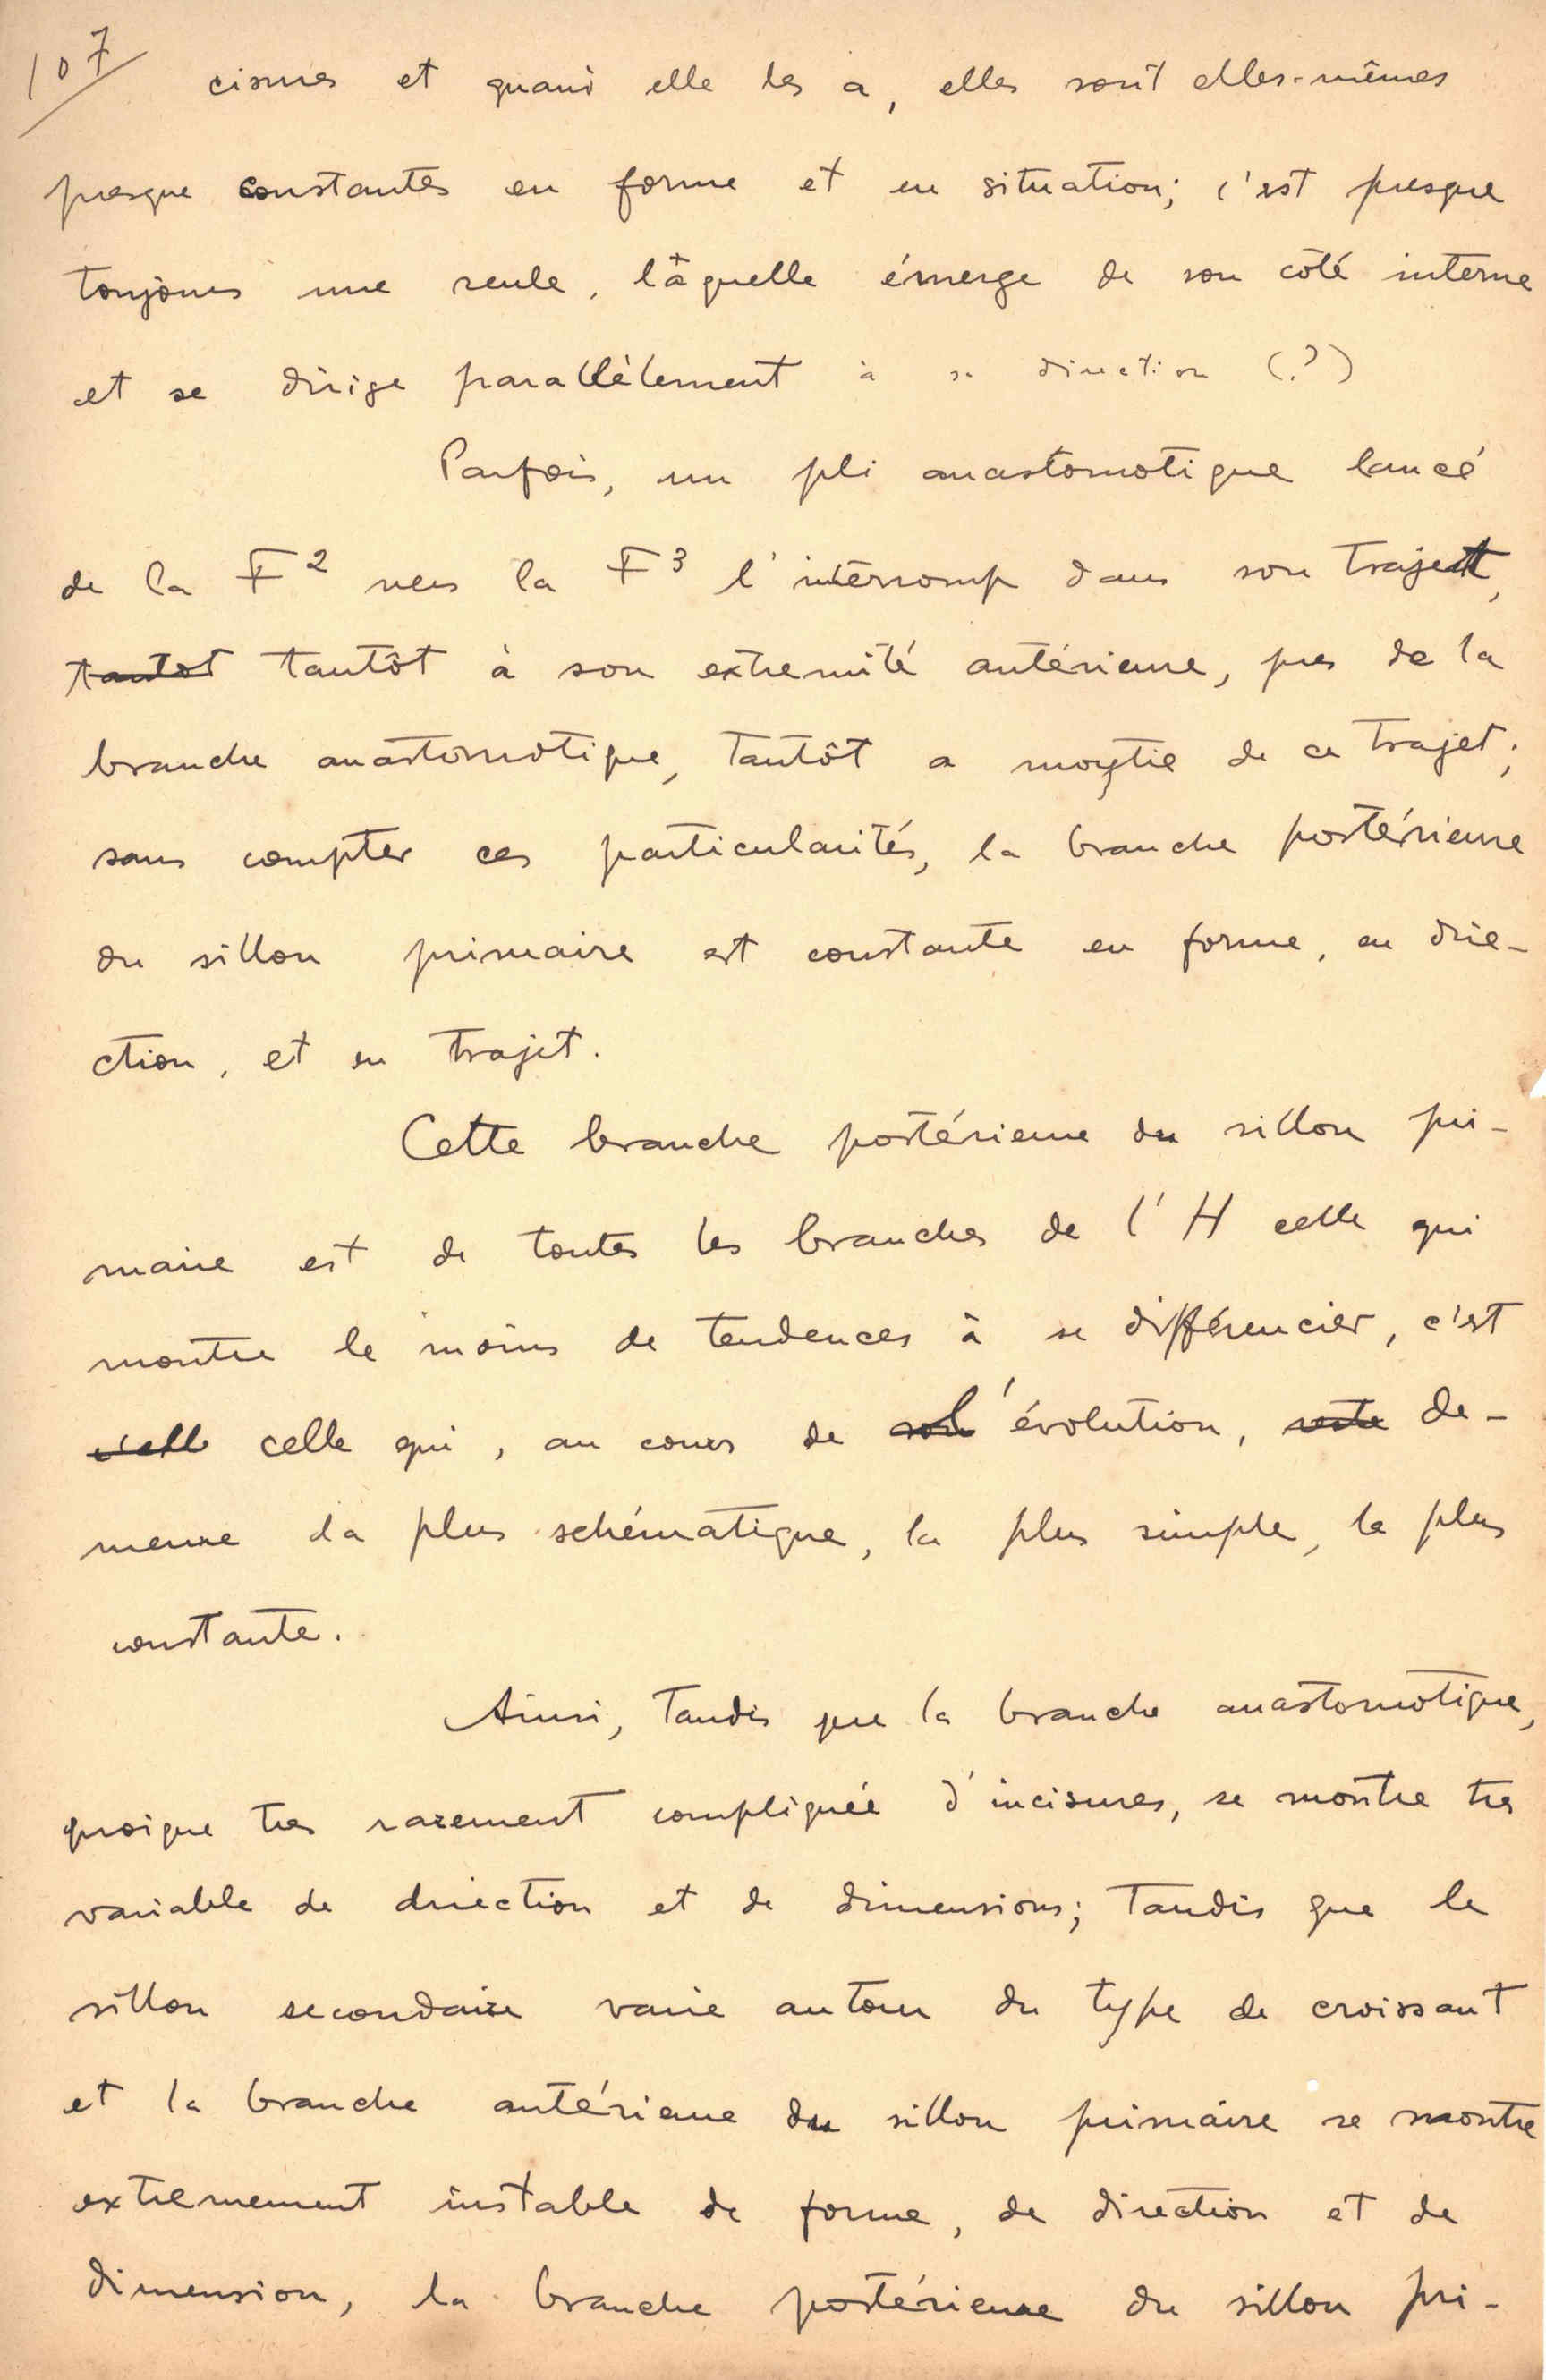 107
cisures et quand elle les a, elles sont elles-mêmes
presque constantes en forme et en situation; c'est presque
toujours une seule, laquelle émerge de son côté interne
et se dirige parallèlement à sa direction (?)
Parfois, un pli anastomotique lancé
de la F² vers la F³ l'interromp dans son traject,
tantot tantôt à son extremité antérieure, pres de la
branche anastomotique, tantôt a moytie de ce trajet;
sans compter ces particularités, la branche postérieure
du sillon primaire est constante en forme, en dire-
ction, et en trajet.
Cette branche postérieure du sillon pri-
maire est de toutes les branches de l'H celle qui
montre le moins de tendences à se différencier, c'est
celle qui, au cours de l'évolution, reste de-
meure la plus schématique, la plus simple, la plus
constante.
Ainsi, tandis que la branche anastomotique,
quoique tres rarement compliquée d'incisures, se montre tres
variable de direction et de dimensions; tandis que le
sillon secondaire varie autour du type de croissant
et la branche antérieure du sillon primaire se montre
extremement instable de forme, de direction et de
dimension, la branche postérieure du sillon pri-